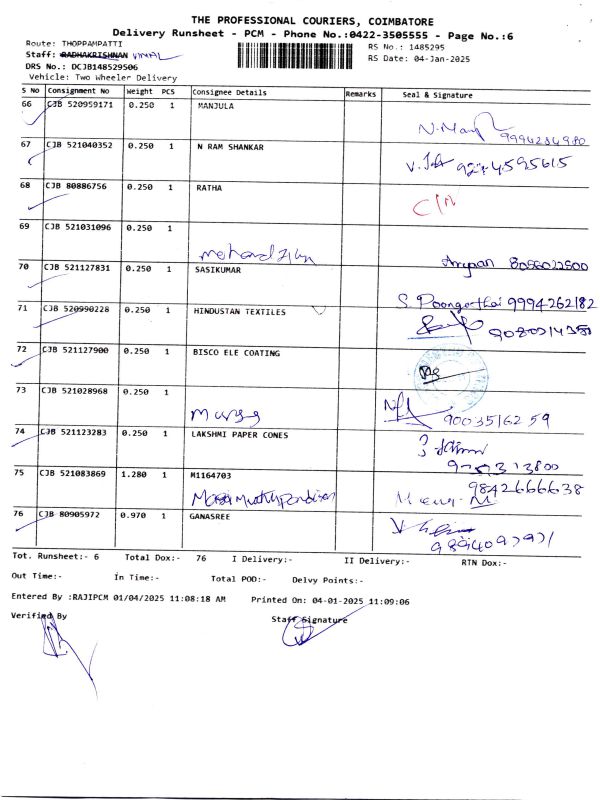 THE PROFESSIONAL COURIERS, COIMBATORE
Delivery Runsheet - PCM - Phone No.:0422-3505555 - Page No.:6
Route: THOPPAMPATTI
RS No.: 1485295
Staff: RADHAKRISHNAN VIMAL
RS Date: 04-Jan-2025
DRS No.: DCJB148529506
Vehicle: Two Wheeler Delivery
S No Consignment No Weight PCS Consignee Details Remarks Seal & Signature
66 CJB 520959171 0.250 1 MANJULA
67 CJB 521040352 0.250 1 N RAM SHANKAR
68 CJB 80886756 0.250 1 RATHA
69 CJB 521031096 0.250 1
8056022500
70 CJB 521127831 0.250 1 SASIKUMAR
9994262182
71 CJB 520990228 0.250 1 HINDUSTAN TEXTILES
72 CJB 521127900 0.250 1 BISCO ELE COATING
73 CJB 521028968 0.250 1
9003516259
74 CJB 521123283 0.250 1 LAKSHMI PAPER CONES
75 CJB 521083869 1.280 1 M1164703
9842666638
76 CJB 80905972 0.970 1 GANASREE
Tot. Runsheet:- 6 Total Dox:- 76 I Delivery:- II Delivery:- RTN Dox:-
Out Time:- In Time:- Total POD:- Delvy Points:-
Entered By :RAJIPCM 01/04/2025 11:08:18 AM Printed On: 04-01-2025 11:09:06
Verified By Staff Signature